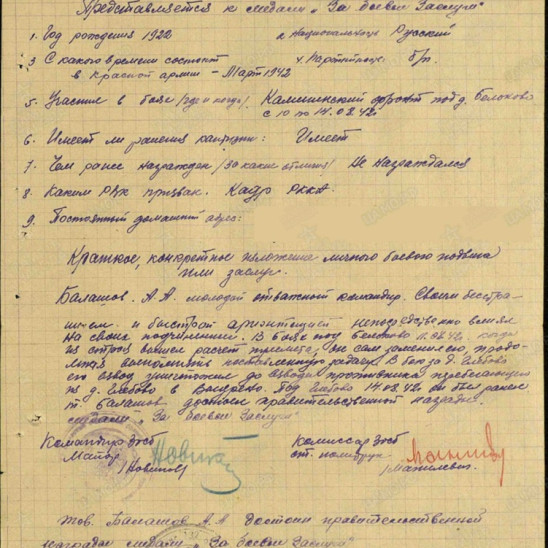 Представляется к медали „За боевые Заслуги"
1. Год рождения 1922 2. Национальность Русский
3. С какого времени состоит 4. Партийность: б/п.
в Красной армии – Март 1942
5. Участие в боях /где и когда/. Калининский фронт под д. Белоково
с 10 по 14.08.42.
6. Имеет ли ранения контузии: Имеет
7. Чем ранее награжден /за какие отличия/ Не награждался
8. Каким РВК призван. Кадр РККА.
9. Постоянный домашний адрес:
Краткое, конкретное изложение личного боевого подвига
или заслуг.
Балашов. А.А. молодой отважный командир. Своим бесстра-
шием и быстрой ориентацией непосредственно влиял
на своих подчиненных. В боях под
из строя вышел расчет он сам
выполнять поставленную задачу. В бою за д.
его взвод уничтожил до взвода противника
на д. в Под 14.08.42. он был ранен
т. Балашов достоин правительственной награды
медали „За боевые Заслуги"
Командир 3отб Комиссар 3отб
Майор ст. политрук
/Новиков/ /Мажилевич/
тов. Балашов А.А достоин правительственной
награды медали „За боевые Заслуги"